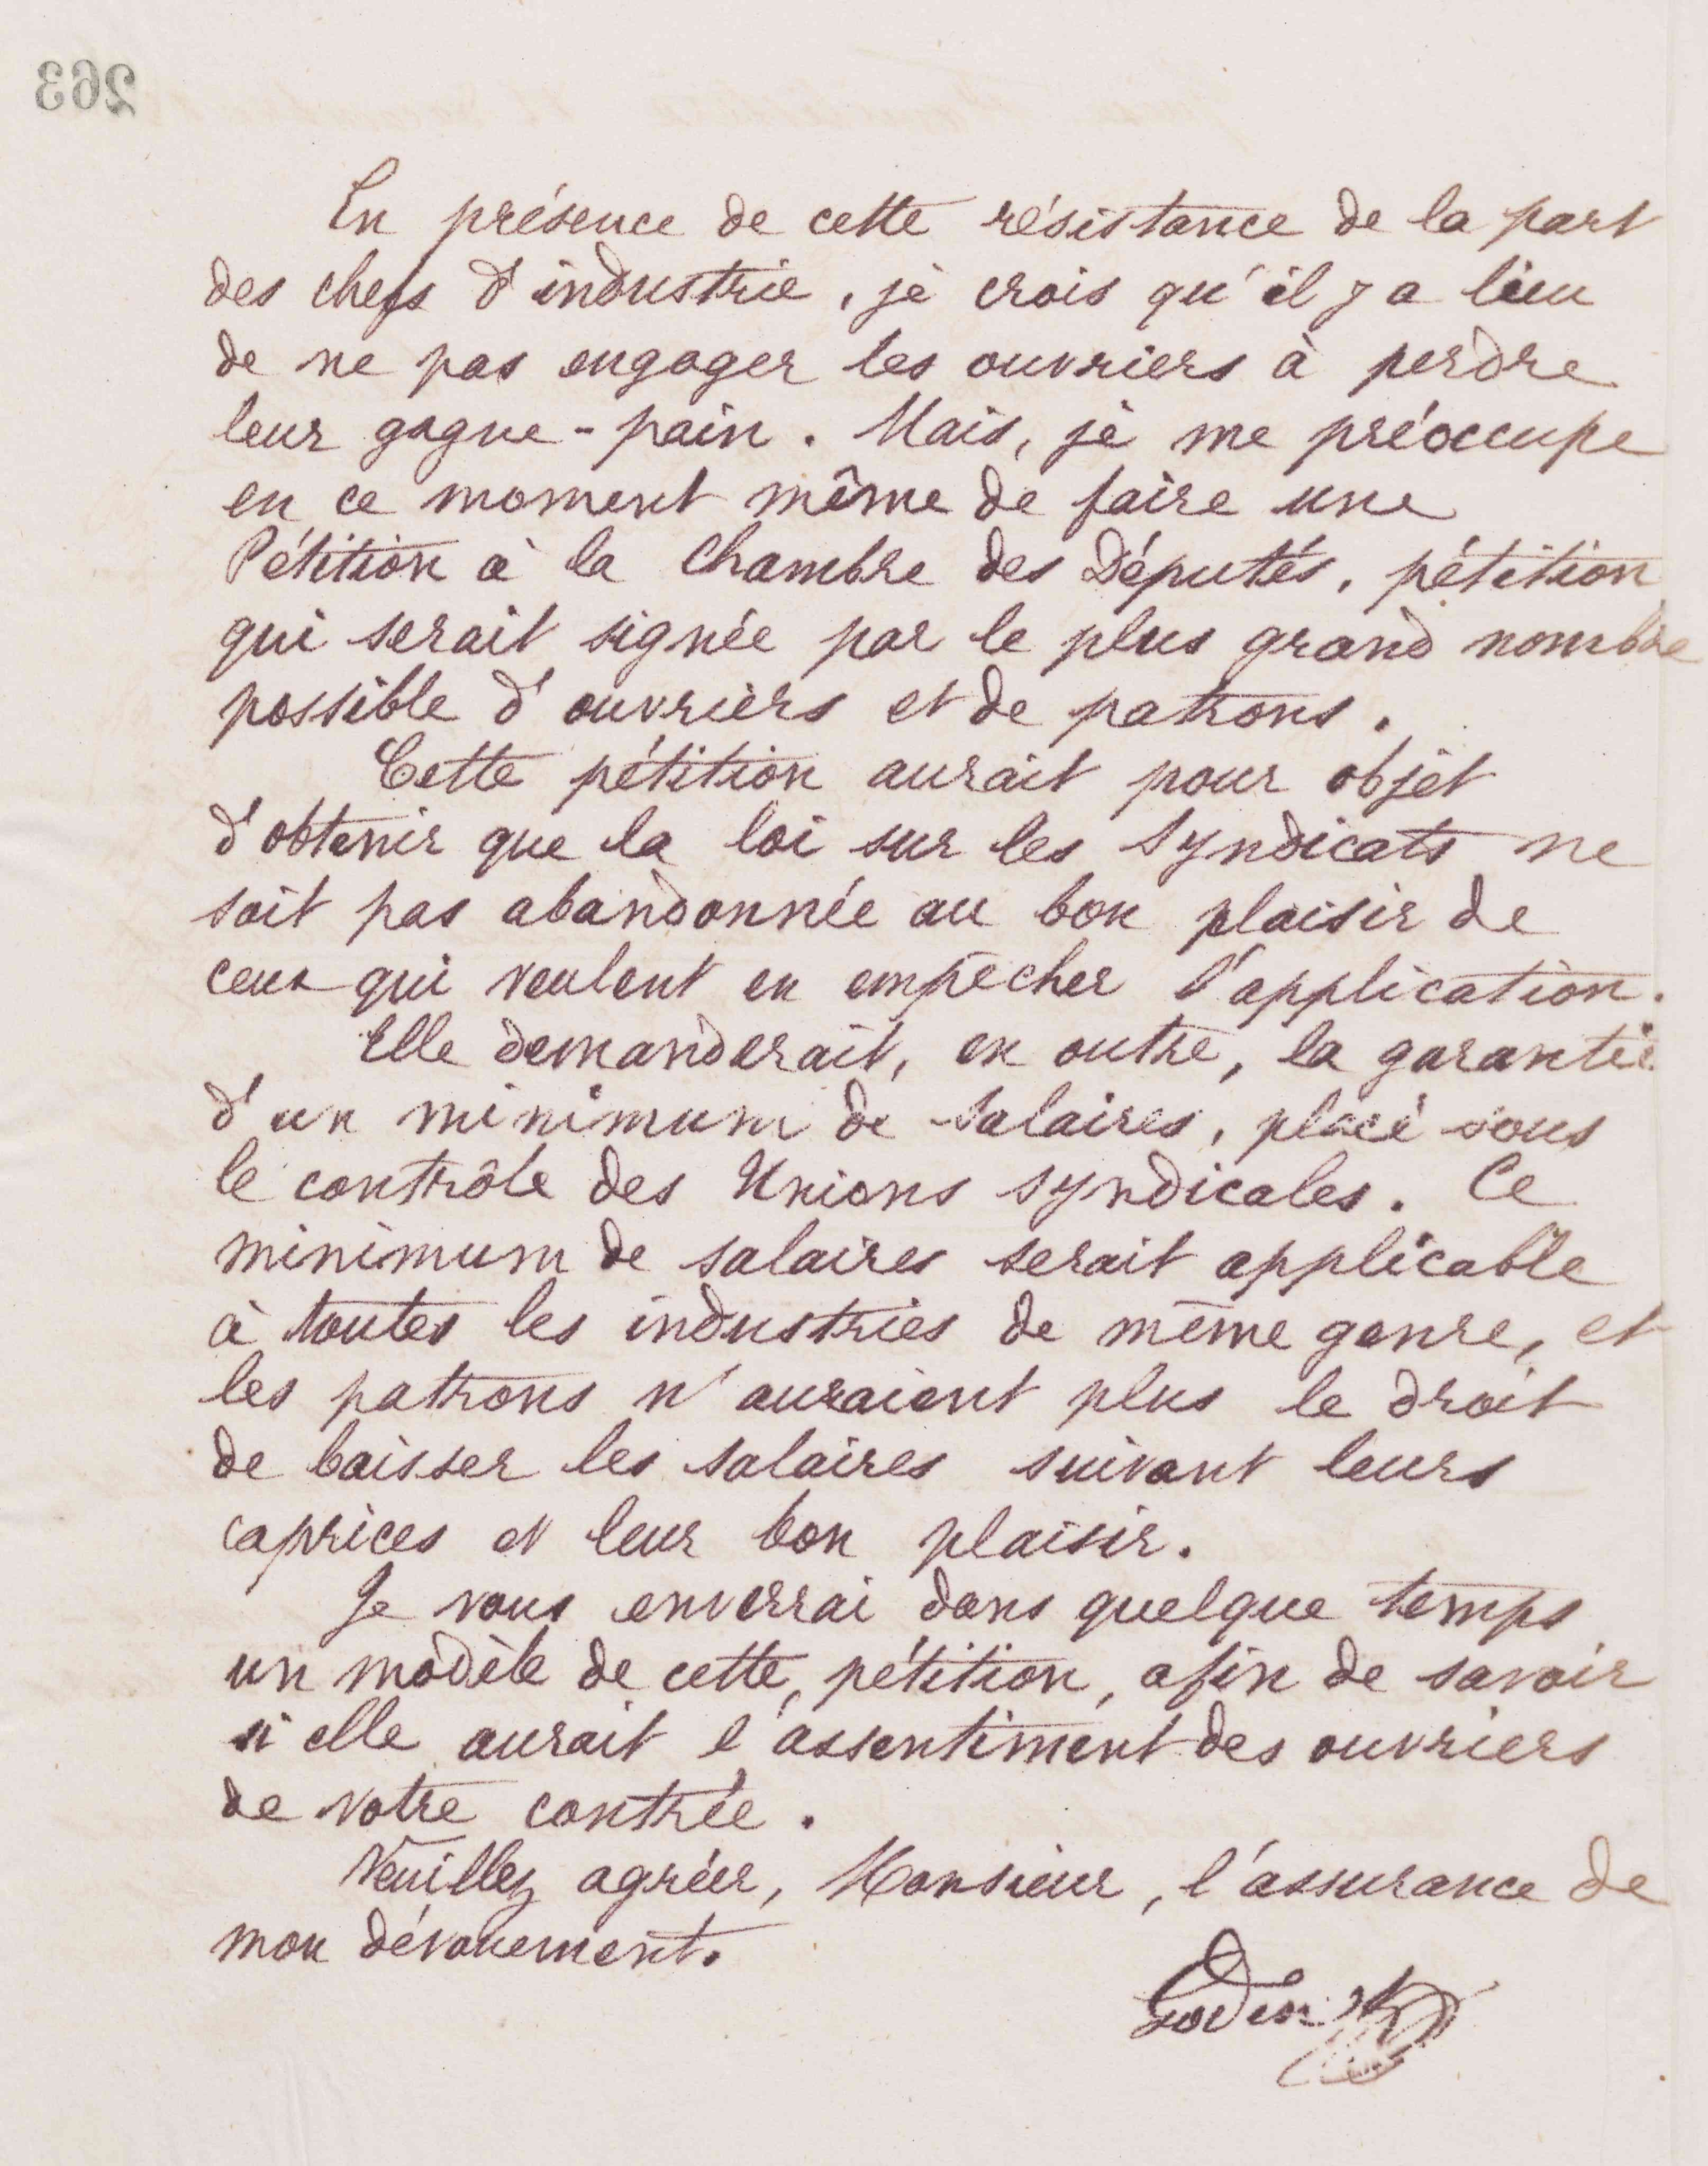 263
En présence de cette résistance de la part
des chefs d'industrie, je crois qu'il y a lieu
de ne pas engager les ouvriers à perdre
leur gagne-pain. Mais, je me préoccupe
en ce moment même de faire une
Pétition à la Chambre des Députés, pétition
qui serait signée par le plus grand nombre
possible d'ouvriers et de patrons.
Cette pétition aurait pour objet
d'obtenir que la loi sur les Syndicats ne
soit pas abandonnée au bon plaisir de
ceux qui veulent en empêcher l'application.
Elle demanderait, en outre, la garantie
d'un minimum de salaires, placé sous
le contrôle des Unions syndicales. Ce
minimum de salaires serait applicable
à toutes les industries de même genre, et
les patrons n'auraient plus le droit
de baisser les salaires suivant leurs
caprices et leur bon plaisir.
Je vous enverrai dans quelque temps
un modèle de cette pétition, afin de savoir
si elle aurait l'assentiment des ouvriers
de votre contrée.
Veuillez agréer, Monsieur, l'assurance de
mon dévouement.
Godin